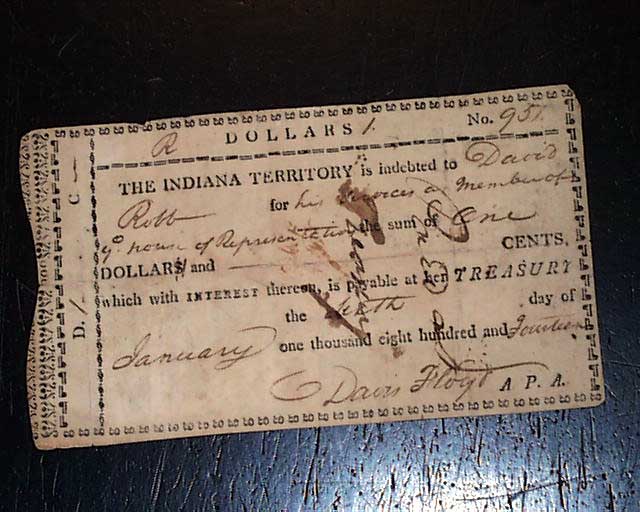 R DOLLARS 1. No. 951.
THE INDIANA TERRITORY is indebted to David
Robb for his Services as Member of
ye House of Representatives the sum of One
DOLLARS and CENTS,
which with INTEREST thereon, is payable at her TREASURY
the Sixth day of
January one thousand eight hundred and Fourteen
Davis Floyd A. P. A.
D. 1. C